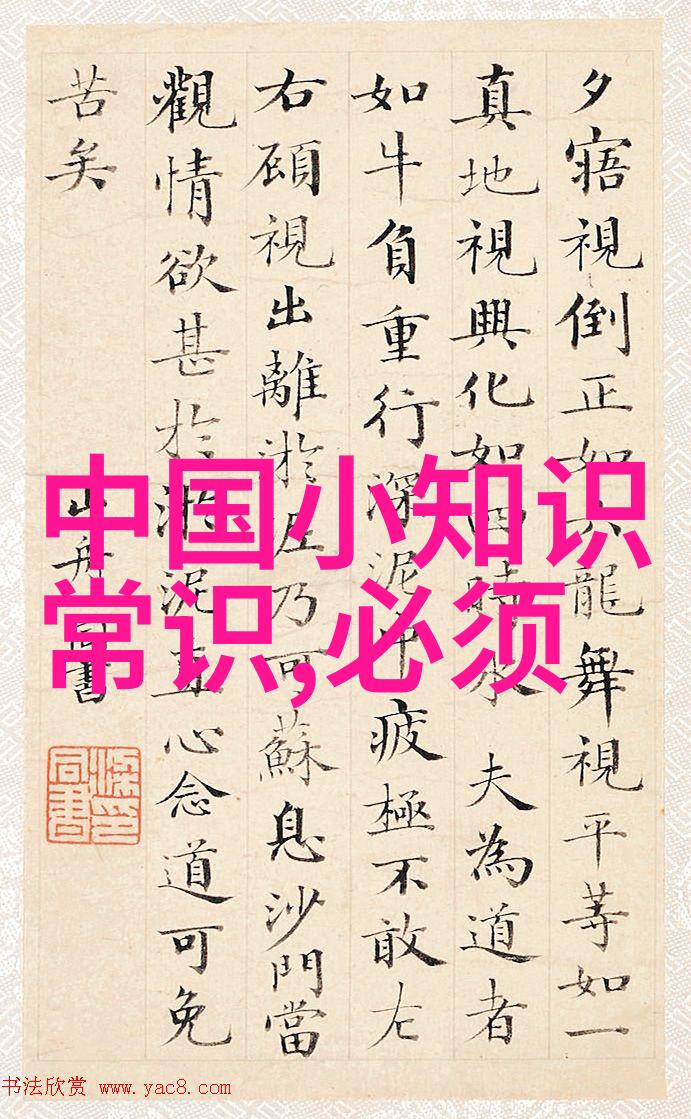 夕寤視倒正如六龍舞視平等如一
真地視興化如四時木 夫為道者
如牛負重行深泥中疲極不敢左
右顧視出離淤泥乃可蘇息沙門當
觀情欲甚於淤泥直心念道可免
苦矣
山舟同書
梁同書印
中国小知识
常识,必须
书法欣赏 www.yac8.com